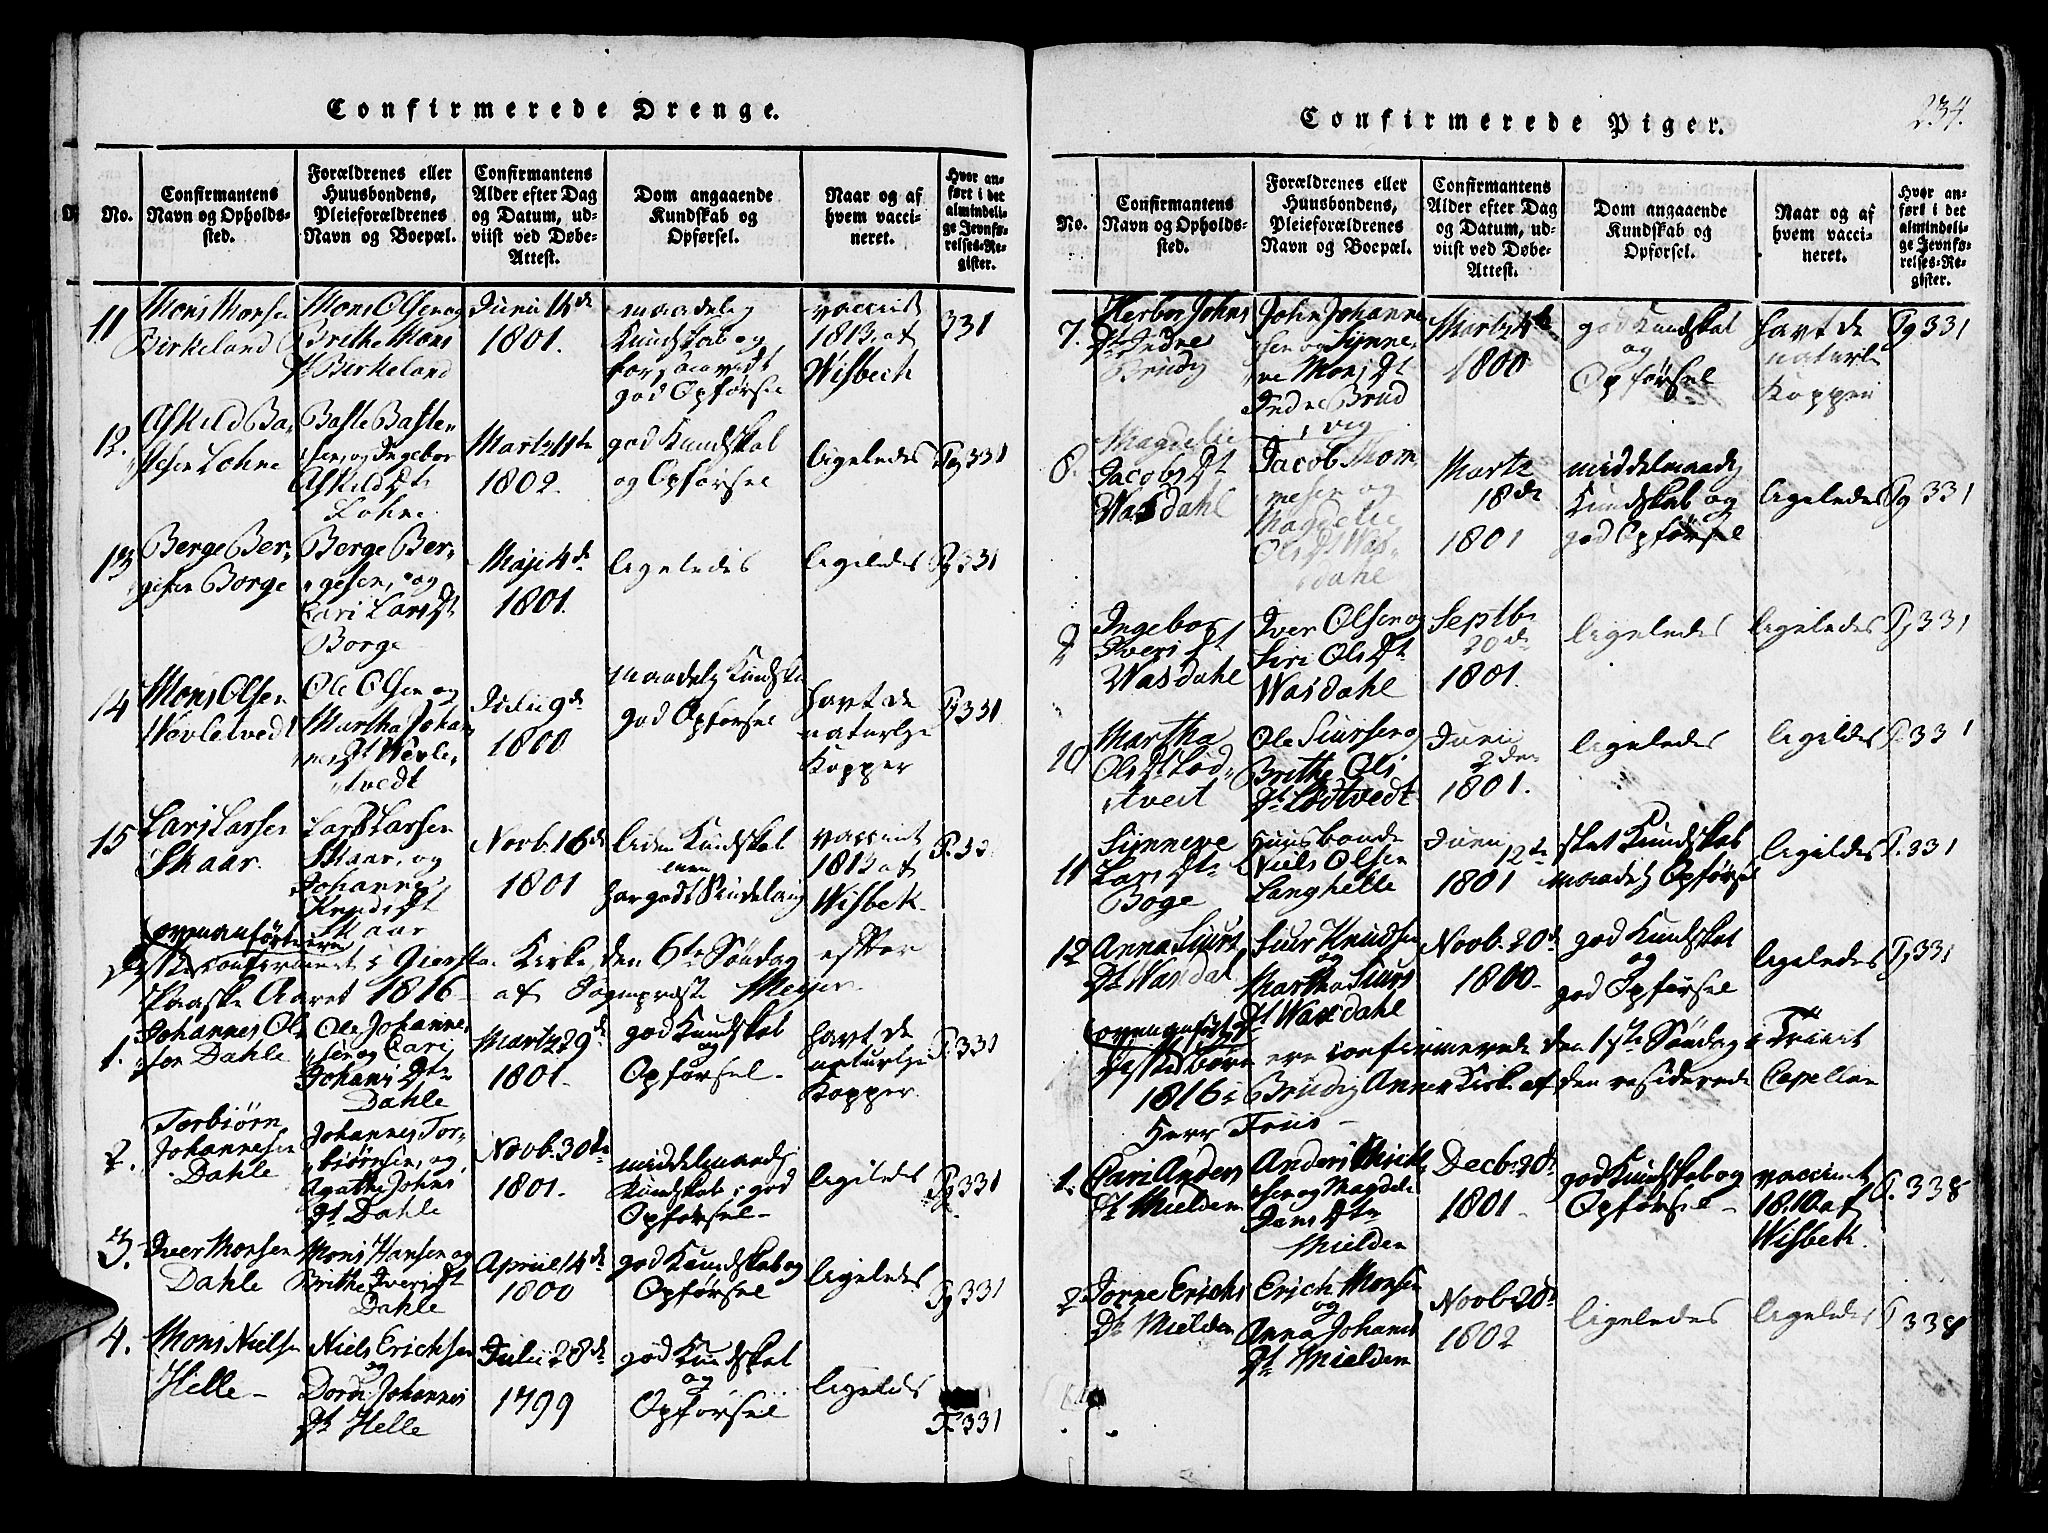 Confirmerede Drenge.
No.
Confirmantens
Navn og Opholds-
sted.
Forældrenes eller
Huusbondens,
Pleieforældrenes
Navn og Boepæl.
Confirmantens
Alder efter Dag
og Datum, ud-
viist ved Døbe-
Attest.
Dom angaaende
Kundskab og
Opførsel.
Naar og af
hvem vacci-
neret.
Hvor an-
ført i det
almindeli-
ge Jevnfø-
relses-Re-
gister.
11
Mons Monsen
Birkeland
Mons Olsen og
Brithe Mons
Dt Birkeland
Junii 14de
1801.
maadelig
Kundskab og
god Opførsel
vaccint
1813 af
Wisbech
331
12.
Askild Ba-
stesen Lohne
Baste Baste-
sen, og Ingebor
Askilds Dt
Lohne
Martz 11te
1802.
god Kundskab
og Opførsel
ligeledes
Pg 331
13
Berge Ber-
gesen Borge
Berge Ber-
gesen, og
Cari Lars Dt
Borge
Maji 4de
1801.
ligeledes
ligeledes
Pg 331
14
Mons Olsen
Wævletvedt
Ole Olsen og
Martha Johan-
nes Dt Wevle-
tvedt
Julii 9de
1800
maadelig Kundska
god Opførsel
havt de
naturlige
Kopper
Pg 331
15
Lars Larsen
Skaar.
Lars Larsen
Skaar, og
Johanne
Knuds Dt
Skaar
Novb. 16de
1801
liden Kundskab
men
har godt Sindelaug
vaccint
1813 af
Wisbek.
P. 33
ovenanførte ere
confirmeret i Kirke, den 6te Søndag efter
Paaske Aaret 1816 af Sognepræst Meyer.
1.
Johannes Ols
søn Dahle
Ole Johanne-
sen og Cari
Johans Dtr
Dahle
Martz 29de
1801.
god Kundskab
og
Opførsel.
havt de
naturlige
Kopper.
P. 331
2.
Torbiørn
Johannesen
Dahle
Johannes Tor-
biørnsen, og
Agathe Johns
Dt. Dahle
Novb. 30te
1801.
middelmaads
Kundskab, god
Opførsel
ligeledes
Pg 331
3.
Iver Monsen
Dahle
Mons Hansen og
Brithe Ivers Dt
Dahle
Apriil 14de
1800
god Kundskab og
Opførsel
ligeledes
Pg 331
4.
Mons Nielsen
Helle
Niels Erichsen
og
Dorde Johannes
Dt Helle
Julii 28de
1799
god Kundskab
og
Opførsel
ligeledes
P. 331
Confirmerede Piger.
234.
No.
Confirmantens
Navn og Opholds-
sted.
Forældrenes eller
Huusbondens,
Pleieforældrenes
Navn og Boepæl.
Confirmantens
Alder efter Dag
og Datum, ud-
viist ved Døbe-
Attest.
Dom angaaende
Kundskab og
Opførsel.
Naar og af
hvem vacci-
neret.
Hvor an-
ført i det
almindeli-
ge Jevnfø-
relses-Re-
gister.
7.
Herbor Johns
Dt Indre
Brudv
John Johanne
sen og Synne-
ve Mons Dt
Indre Brud
vig
Martz 4de
1800
god Kundskab
og
Opførsel
havt de
naturl
Kopper
Pg 331
8.
Magdelie
Jacobs Dt
Wasdahl
Jacob Mom-
mesen og
Magdelie
Ols Dt Was-
dahl
Martz
18de
1801
middelmaadig
Kundskab og
god Opførsel
ligeledes
Pg 331
9
Ingebor
Ivers Dt
Wasdahl
Iver Olsen og
Siri Ols Dt
Wasdahl
Septb.
20de
1801.
ligeledes
ligeledes
Pg 331
10
Martha
Ols Dt Lod-
tveit
Ole Siursen og
Brithe Ols
Dt. Lodtvedt
Junii
2den
1801.
ligeledes
ligeledes
P. 331
11
Synneve
Lars Dtr
Boge
Huusbonde
Niels Olsen
Langhelle
Junii
12te
1801
slet Kundskab
maadelig Opførsel
ligeledes
P. 331
12
Anna Siurs
Dt Wasdal
Siur Knudsen
og
Martha Siurs
Dt Wasdahl
Novb. 20de
1800.
god Kundskab
og
god Opførsel
ligeledes
Pg 331
Børn ere confirmerede den 17te Søndag e. Trinit
1816 i Brudvig Annex Kirke af den residerende Capellan
Herr Friis
1.
Cari Anders
Dt Mielden
Anders Mickl
sen og Magdeli
Jans Dtr
Mielden
Decb. 20de
1801
god Kundskab og
Opførsel
vaccinert
1810 af
Wisbek.
P. 338
2
Jorne Erichs
Dt. Mielden
Erich Monsen
og
Anna Johans
Dt Mielden
Novb 28de
1802
ligeledes
ligeledes
P 338